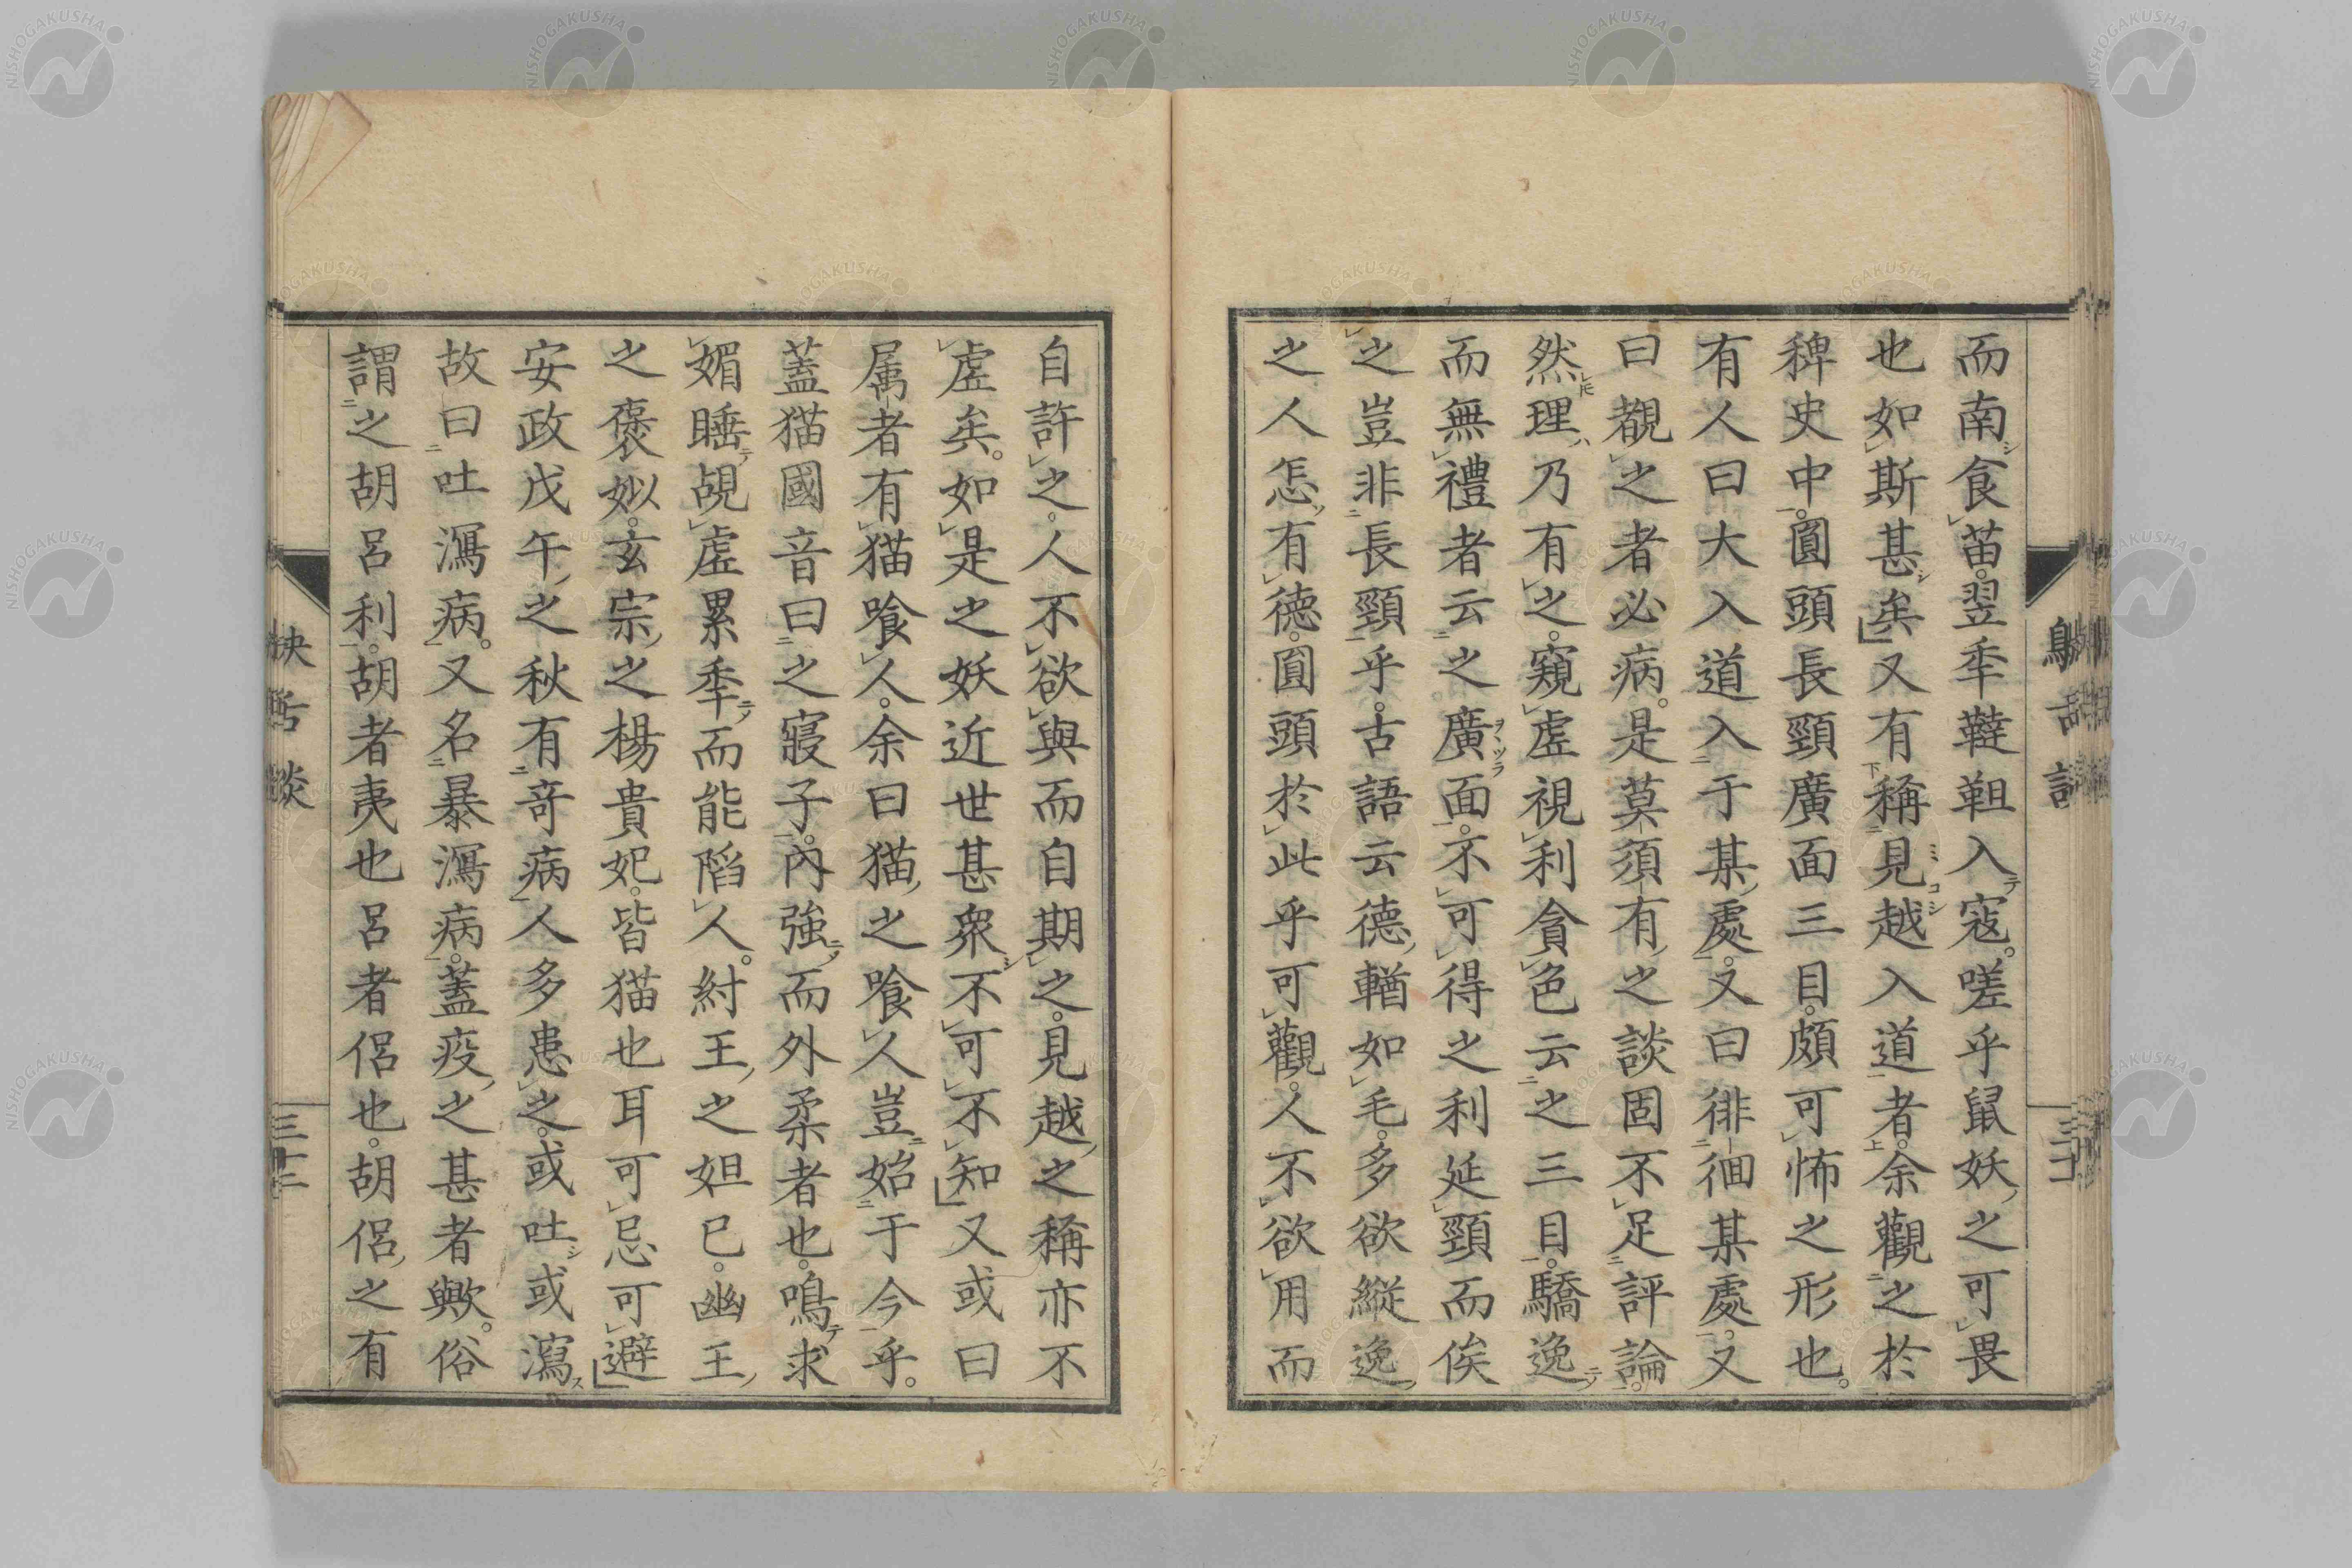 而南食苗。翌年韃靼入寇。嗟乎鼠妖之可畏
也如斯甚矣」又有稱見越入道者。余觀之於
稗史中。圓頭長頸廣面三目。頗可怖之形也。
有人曰大入道入于某處。又曰徘徊某處。又
曰覩之者必病。是莫須有之談固不足評論。
然理乃有之。窺虛視利貪色云之三目。驕逸
而無禮者云之廣面。不可得之利延頸而俟
之豈非長頸乎。古語云德輶如毛。多欲縱逸
之人怎有德。圓頭於此乎可觀。人不欲用而
自許之。人不欲與而自期之。見越之稱亦不
虛矣。如是之妖近世甚衆。不可不知」又或曰
属者有猫喰人。余曰猫之喰人豈始于今乎。
蓋猫國音曰之寢子。內強而外柔者也。鳴求
媚睡覘虛累年而能陷人。紂王之妲已。幽王
之褒姒。玄宗之楊貴妃。皆猫也耳可忌可避」
安政戊午之秋有奇病人多患之。或吐或瀉
故曰吐瀉病。又名暴瀉病。蓋疫之甚者歟。俗
謂之胡呂利。胡者夷也呂者侶也。胡侶之有
三十二